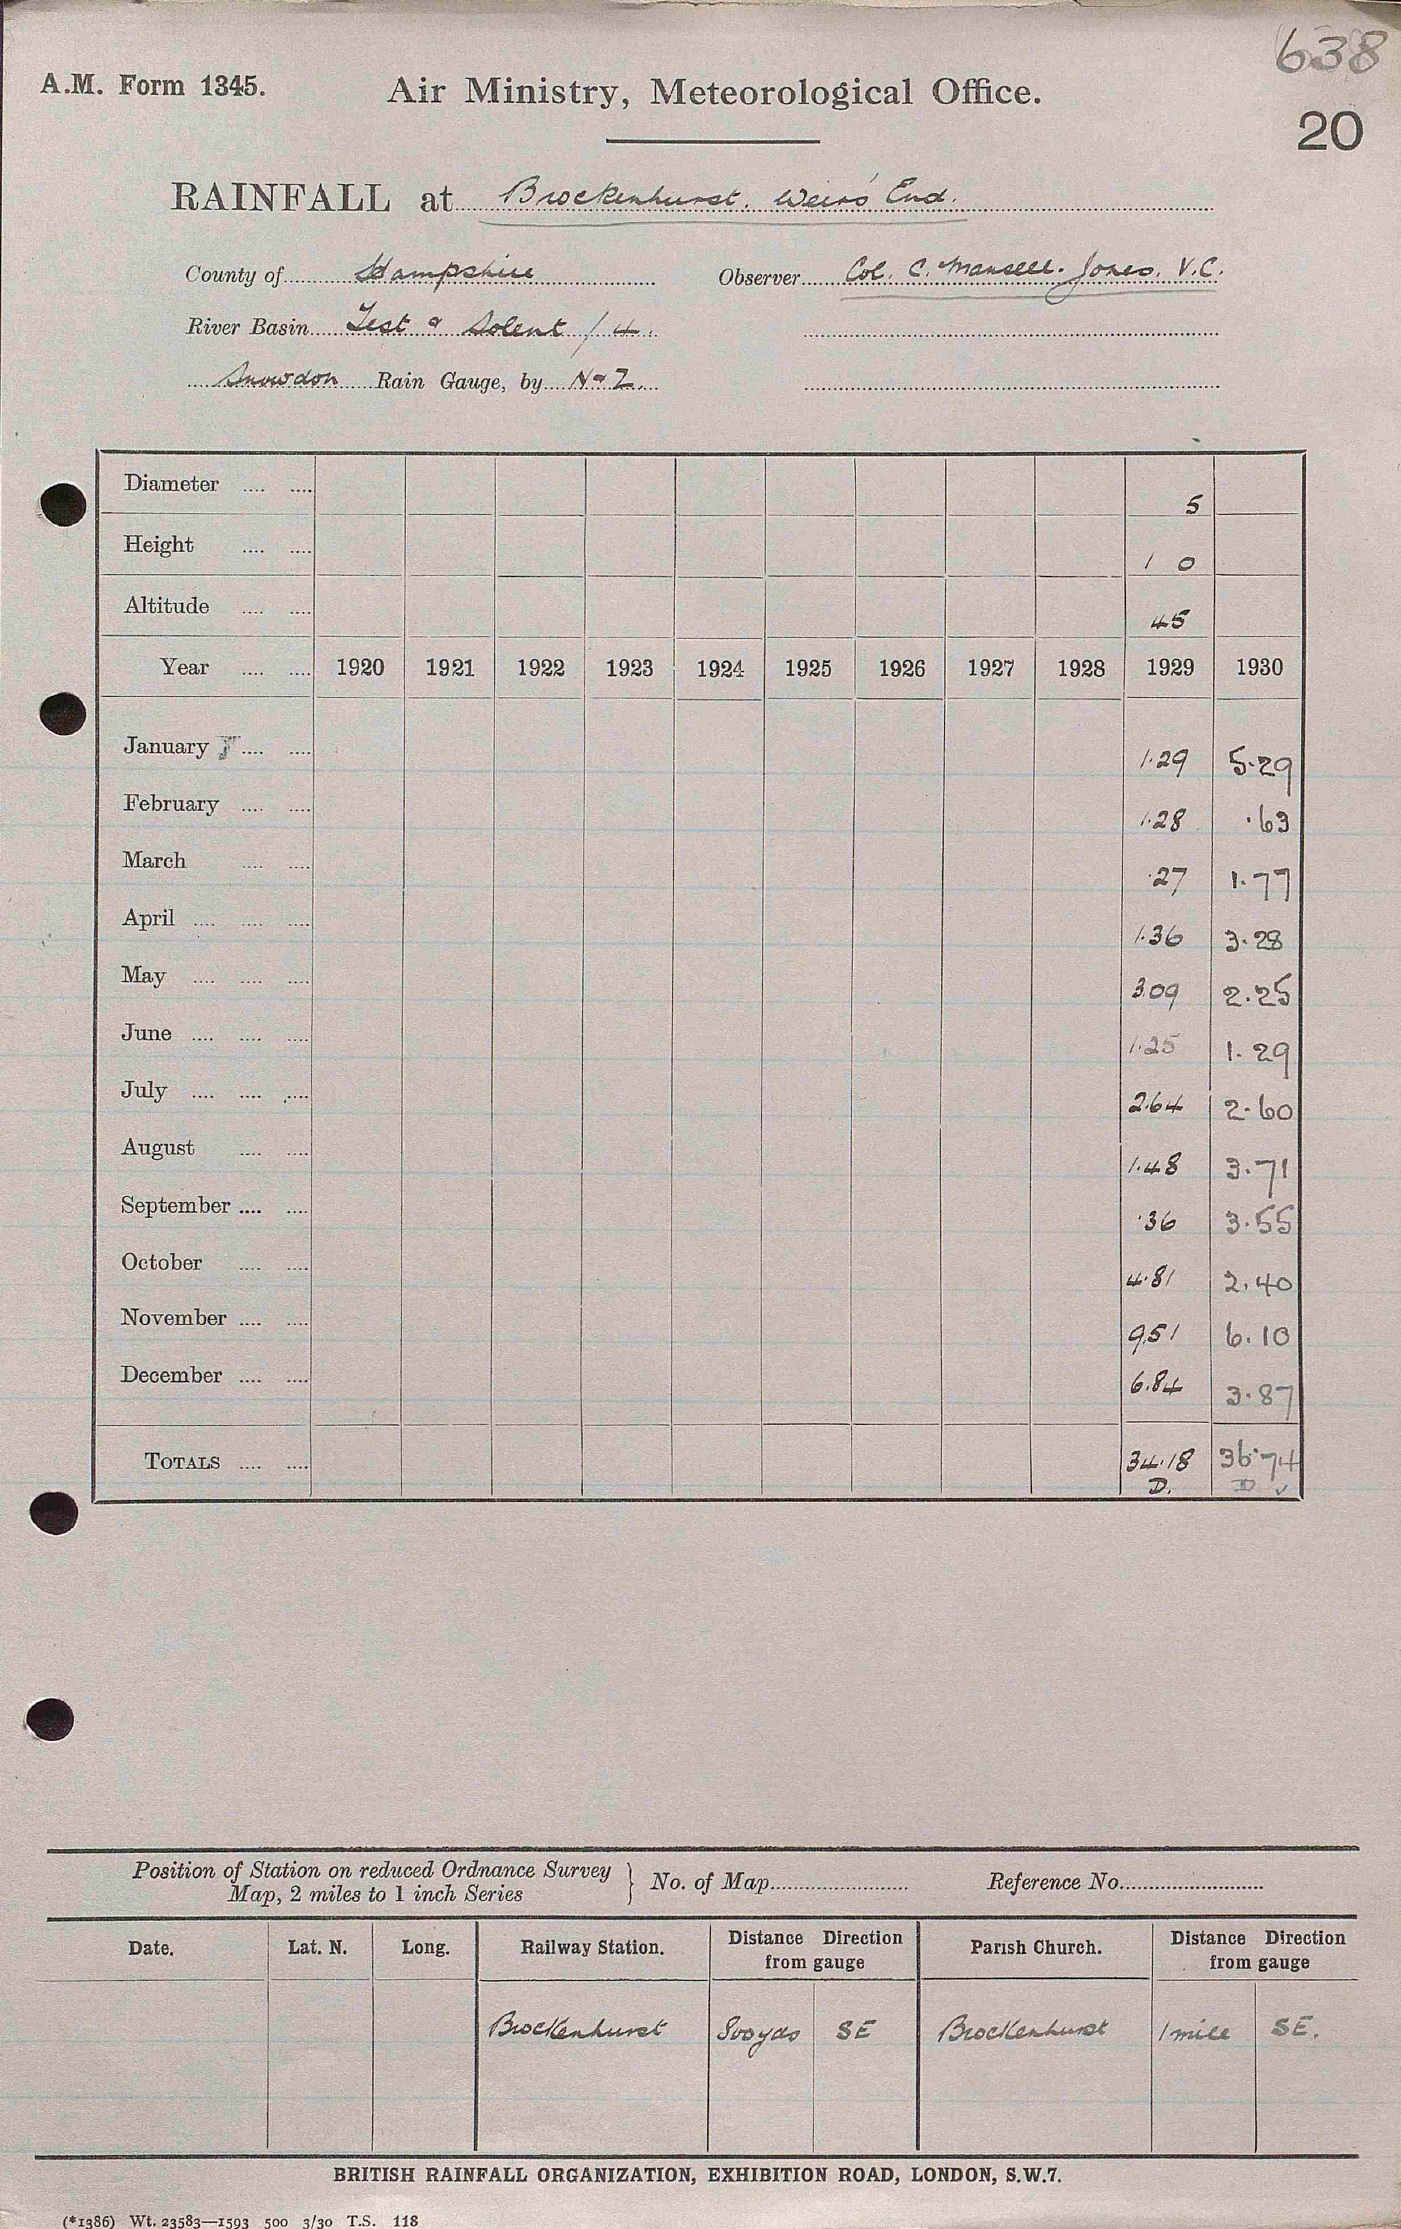 638
A.M. Form 1345.
Air Ministry, Meteorological Office.
20
RAINFALL at Brockenhurst. Weirs End.
County of Hampshire Observer Col. C. Mansell-Jones. V.C.
River Basin Test & Solent / 4.
Snowdon Rain Gauge, by N & Z.
Diameter .... .... 5
Height .... .... 1 0
Altitude .... .... 45
Year .... .... 1920 1921 1922 1923 1924 1925 1926 1927 1928 1929 1930
January .... .... 1.29 5.29
February .... .... 1.28 .63
March .... .... .27 1.77
April .... .... .... 1.36 3.28
May .... .... .... 3.09 2.25
June .... .... .... 1.25 1.29
July .... .... .... 2.64 2.60
August .... .... 1.48 3.71
September .... .... .36 3.55
October .... .... 4.81 2.40
November .... .... 9.51 6.10
December .... .... 6.84 3.87
TOTALS .... .... 34.18 36.74
D. D ✓
Position of Station on reduced Ordnance Survey
Map, 2 miles to 1 inch Series } No. of Map Reference No.
Date. Lat. N. Long. Railway Station. Distance Direction from gauge Parish Church. Distance Direction from gauge
Brockenhurst 800 yds SE Brockenhurst 1 mile SE.
BRITISH RAINFALL ORGANIZATION, EXHIBITION ROAD, LONDON, S.W.7.
(*1386) Wt. 23583—1593 500 3/30 T.S. 118